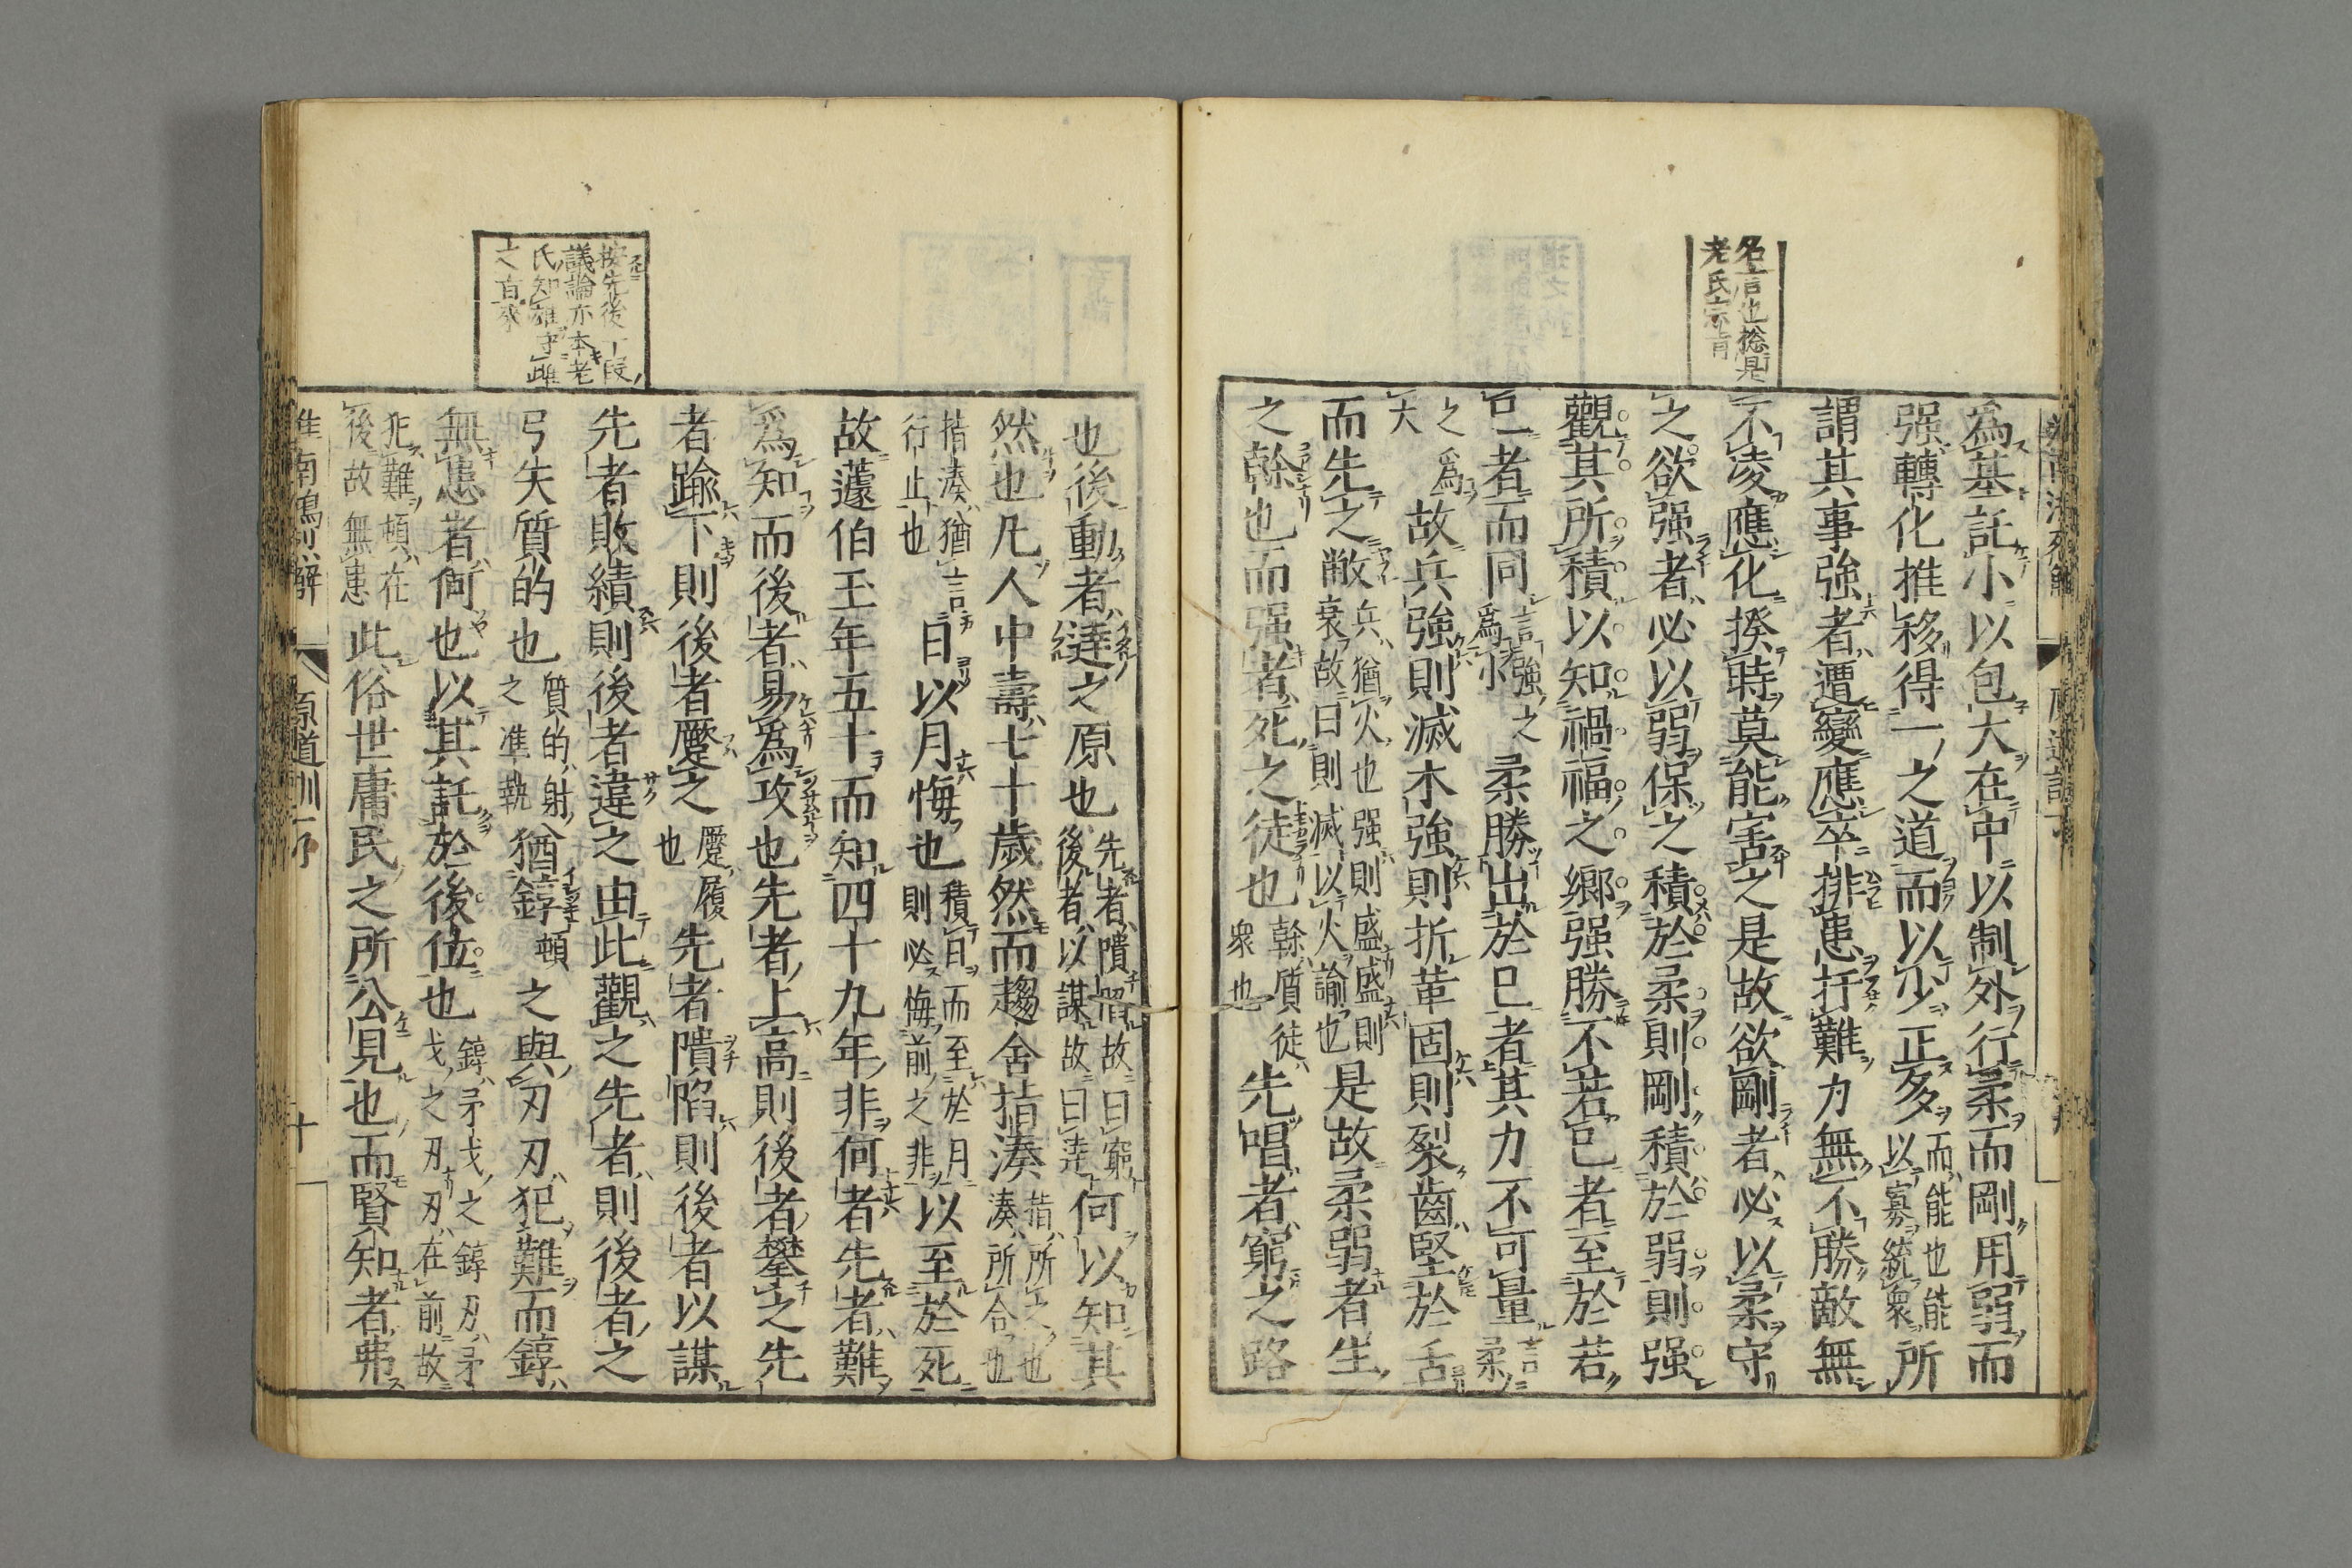 名言也總是
老氏宗旨
為基託小以包大在中以制外行柔而剛用弱而
强轉化推移得一之道而以少正多而能也能以寡統衆所
謂其事強者遭變應卒排患扞難力無不勝敵無
不凌應化揆時莫能害之是故欲剛者必以柔守
之欲强者必以弱保之積於柔則剛積於弱則强
觀其所積以知禍福之鄉强勝不若已者至於若
已者而同言強之為小柔勝出於已者其力不可量言柔
之為大故兵強則滅木強則折革固則裂齒堅於舌
而先之敝兵猶火也强則盛盛則衰故曰則滅以火諭也是故柔弱者生
之榦也而强者死之徒也榦質徒衆也先唱者窮之路
也後動者達之原也先者隤陷故曰窮後者以謀故曰達何以知其
然也凡人中壽七十歲然而趨舍指湊指所之也湊所合也
指湊猶言行止也日以月悔也積日而至於月則必悔前之非以至於死
故蘧伯玉年五十而知四十九年非何者先者難
爲知而後者易爲攻也先者上高則後者攀之先
者踰下則後者蹷之蹷履也先者隤陷則後者以謀
先者敗績則後者違之由此觀之先者則後者之
弓矢質的也質的射之準執猶錞頓之與刃刃犯難而錞
無患者何也以其託於後位也錞矛戈之錞刃矛戈之刃刃在前故
犯難頓在後故無患此俗世庸民之所公見也而賢知者弗
按先後一段
議論亦本老
氏知雄守雌
之旨來
淮南鴻烈解 原道訓 十